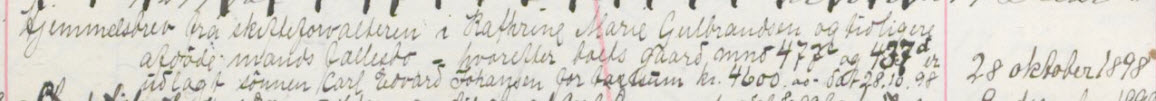 Hjemmelsbrev fra skifteforvalteren i Kathrine Marie Gulbrandsen og tidligere
afdöde mands fallesbo - hvorefter gaard mno 477 og 437d er
udlagt sönnen Carl Edvard Johansen for kr. 4600. dat 28.10.98 28 oktober 1898